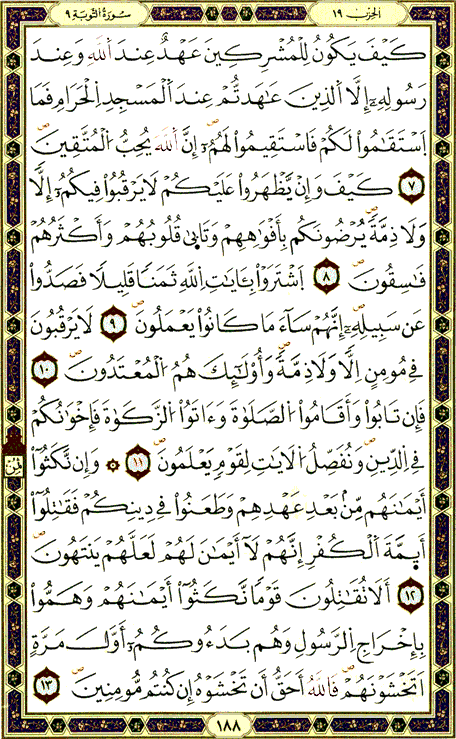 الحزب ١٩
سورة التوبة ٩
كَيْفَ يَكُونُ لِلْمُشْرِكِينَ عَهْدٌ عِندَ اَللَّهِ وَعِندَ
رَسُولِهِۦٓ إِلَّا اَلذِينَ عَٰهَدتُّمْ عِندَ اَلْمَسْجِدِ اِلْحَرَامِ فَمَا
اَسْتَقَٰمُواْ لَكُمْ فَاسْتَقِيمُواْ لَهُمُۥٓ إِنَّ اَللَّهَ يُحِبُّ اُلْمُتَّقِينَ ص
٧ كَيْفَ وَإِنْ يَّظْهَرُواْ عَلَيْكُمْ لَا يَرْقُبُواْ فِيكُمُۥٓ إِلّاٗ
وَلَا ذِمَّةٗ يُرْضُونَكُم بِأَفْوَٰهِهِمْ وَتَأْب۪يٰ قُلُوبُهُمْ وَأَكْثَرُهُمْ
فَٰسِقُونَ ص ٨ اَشْتَرَوْاْ بِـَٔايَٰتِ اِللَّهِ ثَمَناٗ قَلِيلاٗ فَصَدُّواْ
عَن سَبِيلِهِۦٓ إِنَّهُمْ سَآءَ مَا كَانُواْ يَعْمَلُونَ ص ٩ لَا يَرْقُبُونَ
فِے مُومِنٍ اِلّاٗ وَلَا ذِمَّةٗ وَأُوْلَٰٓئِكَ هُمُ اُلْمُعْتَدُونَ ص ١٠
فَإِن تَابُواْ وَأَقَامُواْ اُلصَّلَوٰةَ وَءَاتَوُاْ اُلزَّكَوٰةَ فَإِخْوَٰنُكُمْ
فِے اِلدِّينِ وَنُفَصِّلُ اُلَايَٰتِ لِقَوْمٍ يَعْلَمُونَ ص ١١ ۞ وَإِن نَّكَثُوٓاْ
ثمن
أَيْمَٰنَهُم مِّنۢ بَعْدِ عَهْدِهِمْ وَطَعَنُواْ فِے دِينِكُمْ فَقَٰتِلُوٓاْ
أَيِمَّةَ اَلْكُفْرِ إِنَّهُمْ لَآ أَيْمَٰنَ لَهُمْ لَعَلَّهُمْ يَنتَهُونَ ص
١٢ أَلَا تُقَٰتِلُونَ قَوْماٗ نَّكَثُوٓاْ أَيْمَٰنَهُمْ وَهَمُّواْ
بِإِخْرَاجِ اِلرَّسُولِ وَهُم بَدَءُوكُمُۥٓ أَوَّلَ مَرَّةٍ
اَتَخْشَوْنَهُمْ ص فَاللَّهُ أَحَقُّ أَن تَخْشَوْهُ إِن كُنتُم مُّومِنِينَ ص ١٣
١٨٨